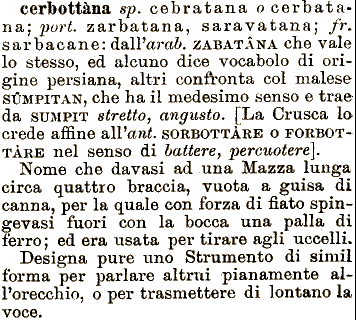 cerbottàna sp. cebratana o cerbata-
na; port. zarbatana, saravatana; fr.
sarbacane: dall'arab. ZABATÂNA che vale
lo stesso, ed alcuno dice vocabolo di ori-
gine persiana, altri confronta col malese
SÛMPITAN, che ha il medesimo senso e trae
da SUMPIT stretto, angusto. [La Crusca lo
crede affine all'ant. SORBOTTÀRE O FORBOT-
TÀRE nel senso di battere, percuotere].
Nome che davasi ad una Mazza lunga
circa quattro braccia, vuota a guisa di
canna, per la quale con forza di fiato spin-
gevasi fuori con la bocca una palla di
ferro; ed era usata per tirare agli uccelli.
Designa pure uno Strumento di simil
forma per parlare altrui pianamente al-
l'orecchio, o per trasmettere di lontano la
voce.